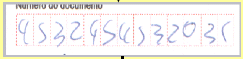 Número do documento
4532454532031